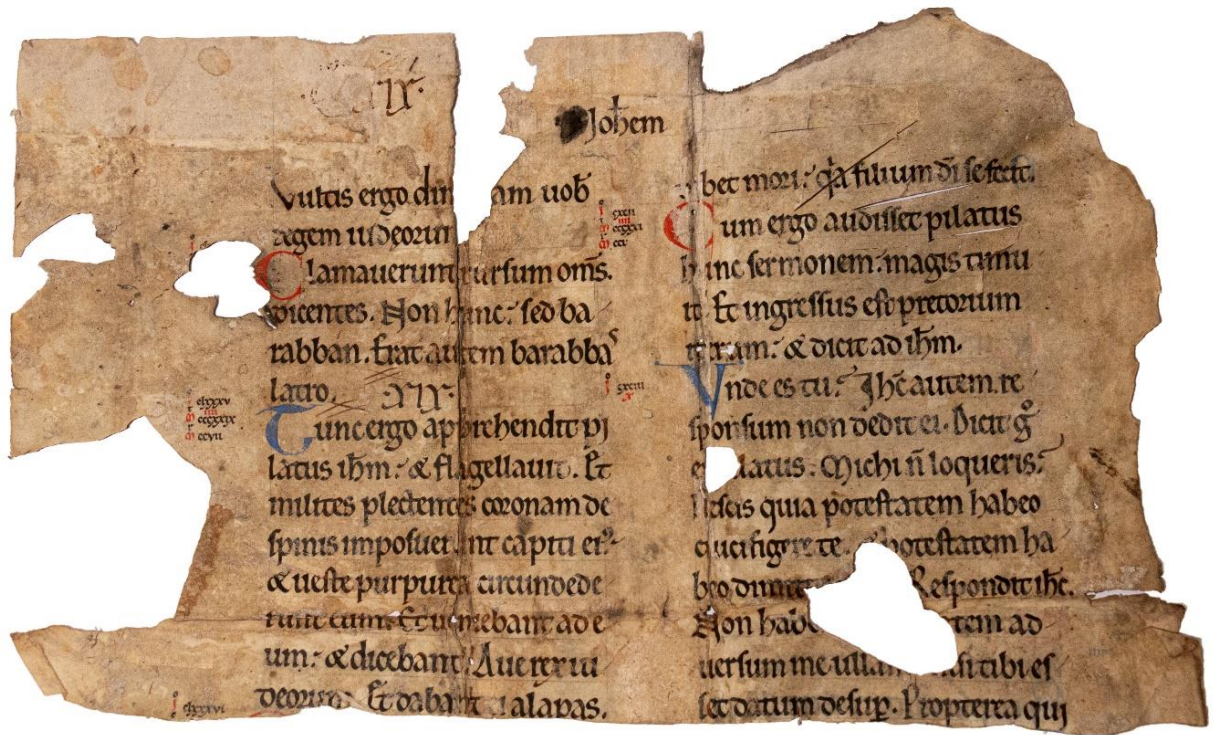 Johem
Vultis ergo dim am uob
regem iudeorum
Clamauerunt rursum oms.
dicentes. Non hunc: sed ba
rabban. Erat autem barabbas
latro. XIX.
Tunc ergo apprehendit pi
latus ihm: & flagellauit. Et
milites plectentes coronam de
spinis imposuerunt capiti ei:
& ueste purpurea circundede
runt eum: Et ueniebant ad e
um: & dicebant. Aue rex iu
deorum. Et dabant ei alapas.
clxxxv
cccxxix
ccvii
clxxxvi
bet mori: qa filium di se fecit.
Cum ergo audisset pilatus
hunc sermonem: magis timu
it. Et ingressus est pretorium
iterum: & dicit ad ihm.
Vnde es tu? Ihc autem re
sponsum non dedit ei. Dicit g
ei pilatus: Michi n loqueris:
Nescis quia potestatem habeo
crucifigere te. & potestatem ha
beo dimitte Respondit ihc.
Non habe tem ad
uersum me ullam nisi tibi es
set datum desup. Propterea qui